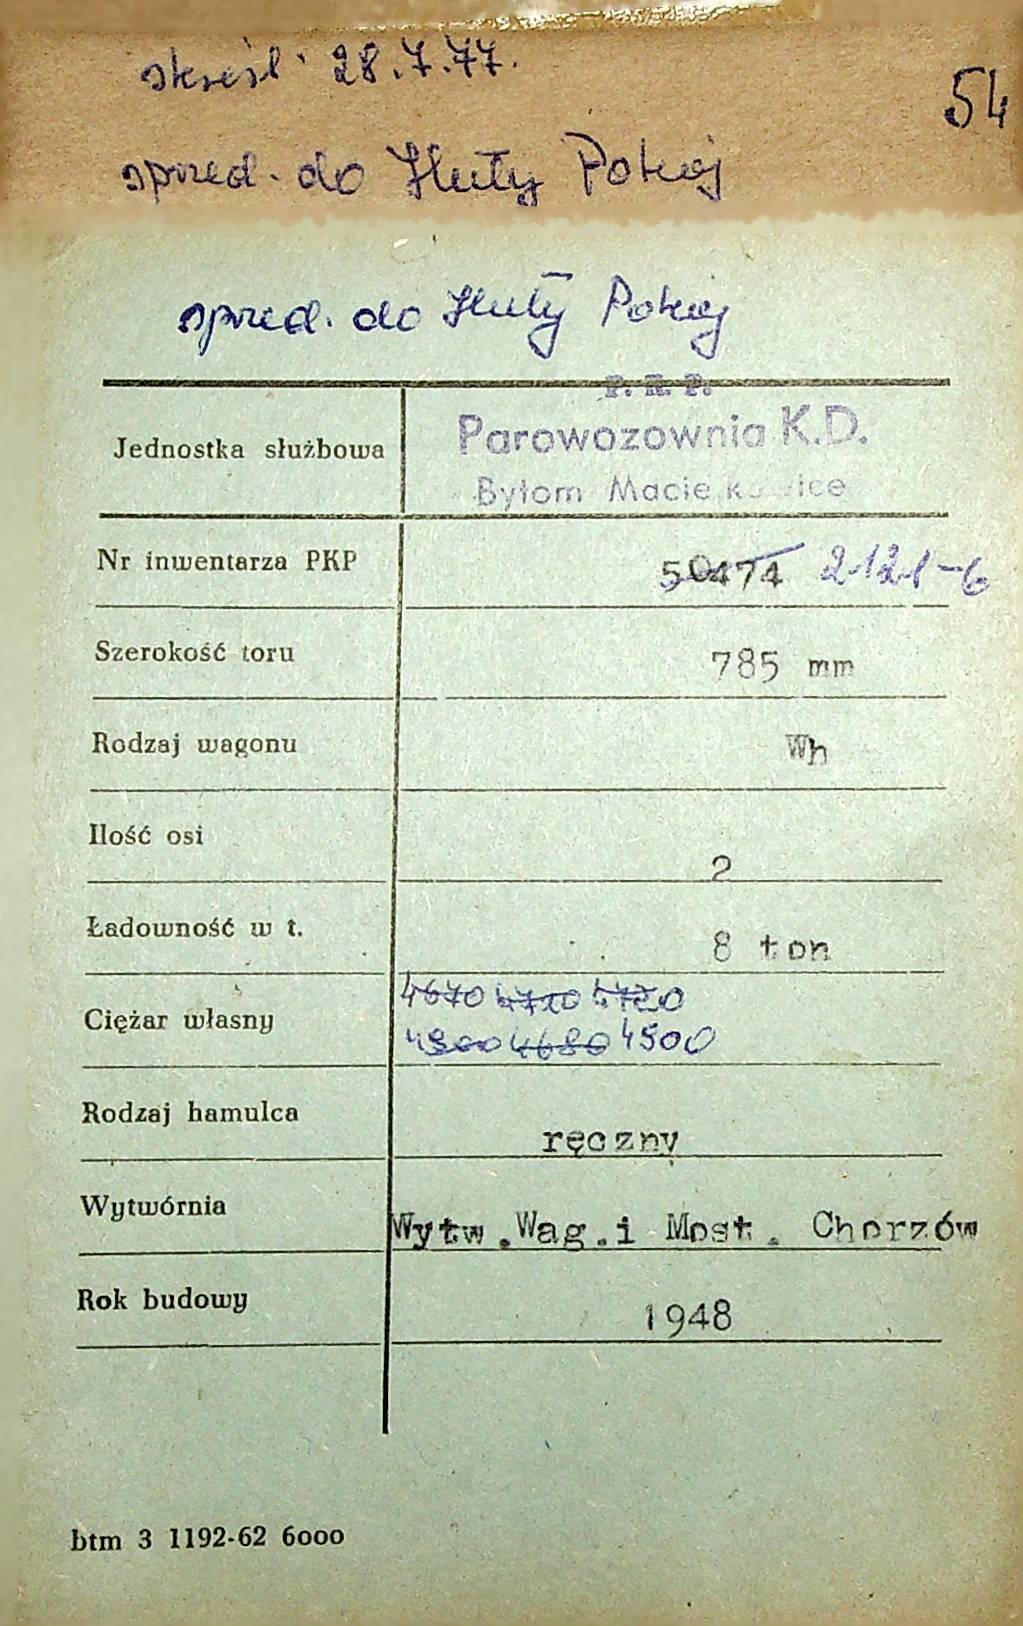 skreśl. 28.7.77.
54
sprzed. do Huty Pokój
sprzed. do Huty Pokój
P. K. P.
Jednostka służbowa Parowozownia K.D.
Bytom Maciejkowice
Nr inwentarza PKP 50474 2121-6
Szerokość toru 785 mm
Rodzaj wagonu Wh
Ilość osi 2
Ładowność w t. 8 ton
4670 4710 4720
Ciężar własny 4800 4680 4500
Rodzaj hamulca ręczny
Wytwórnia Wytw.Wag.i Most. Chorzów
Rok budowy 1948
btm 3 1192-62 6000